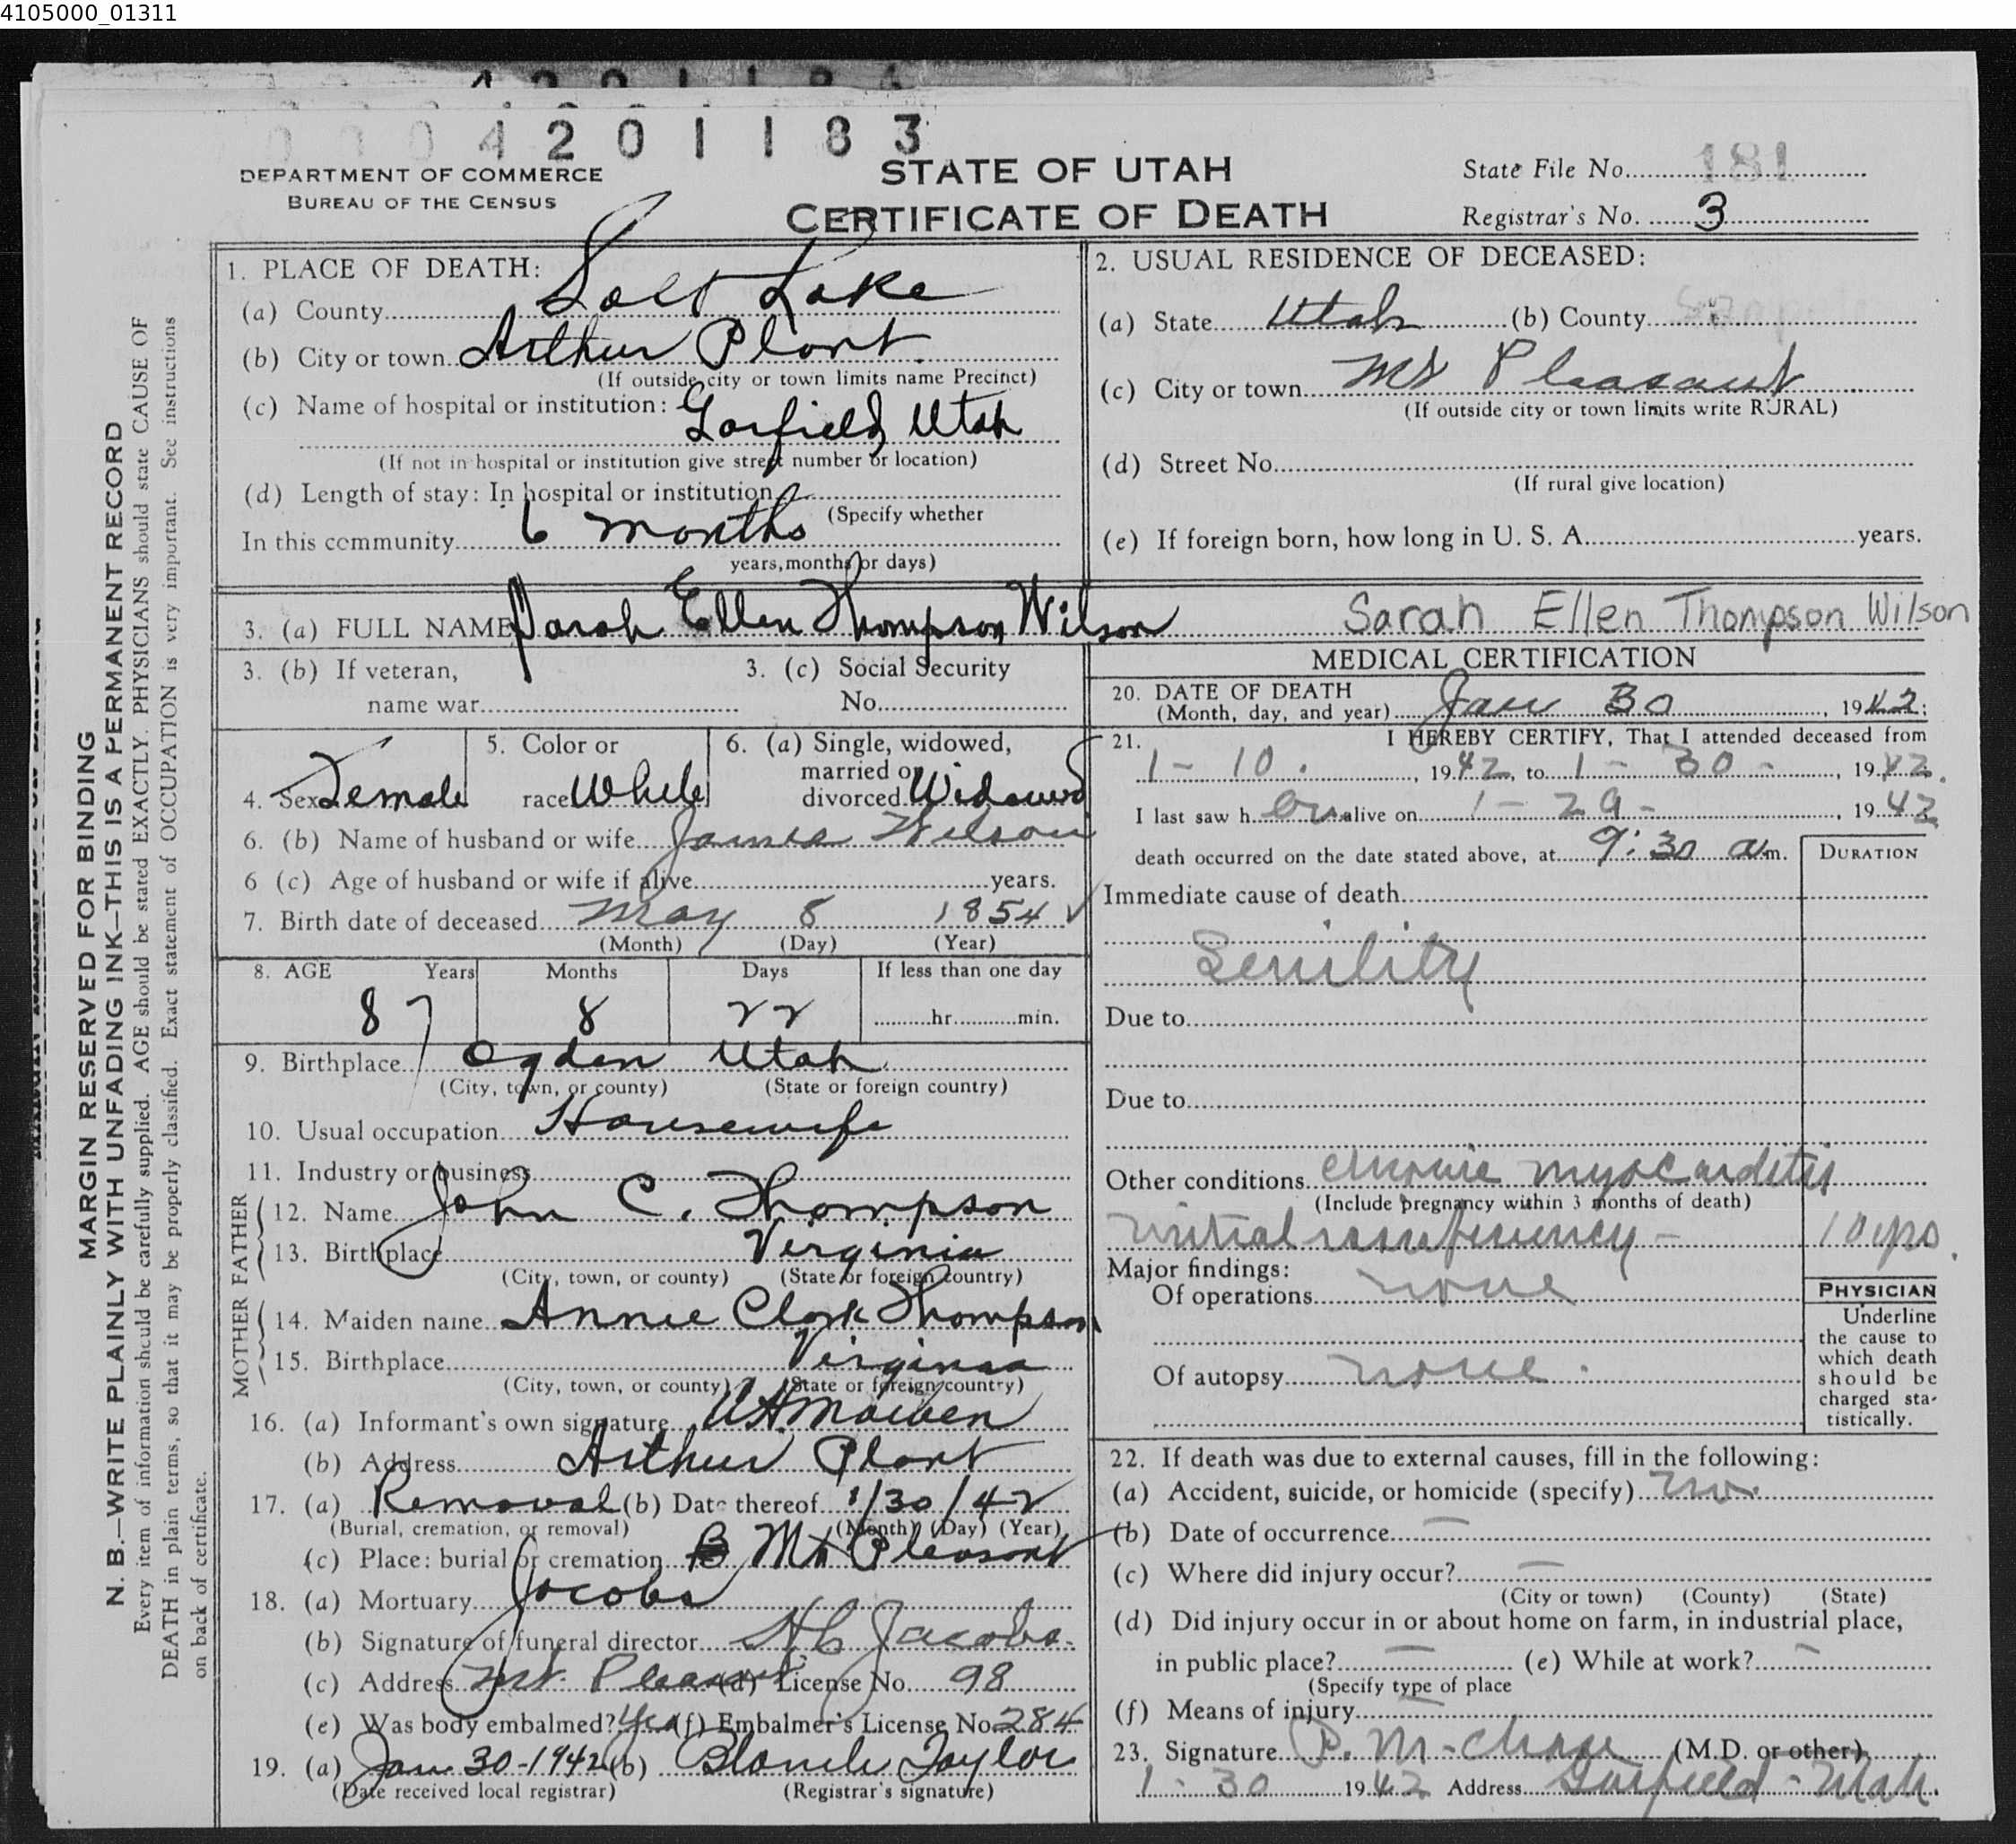 4105000_01311
4201183
DEPARTMENT OF COMMERCE
BUREAU OF THE CENSUS
STATE OF UTAH
CERTIFICATE OF DEATH
State File No. 181
Registrar's No. 3
MARGIN RESERVED FOR BINDING
N. B.—WRITE PLAINLY WITH UNFADING INK—THIS IS A PERMANENT RECORD
Every item of information should be carefully supplied. AGE should be stated EXACTLY. PHYSICIANS should state CAUSE OF
DEATH in plain terms, so that it may be properly classified. Exact statement of OCCUPATION is very important. See instructions
on back of certificate.
1. PLACE OF DEATH:
(a) County Salt Lake
(b) City or town Arthur Plant
(If outside city or town limits name Precinct)
(c) Name of hospital or institution:
Garfield Utah
(If not in hospital or institution give street number or location)
(d) Length of stay: In hospital or institution
(Specify whether
In this community 6 months
years, months or days)
2. USUAL RESIDENCE OF DECEASED:
(a) State Utah (b) County Sanpete
(c) City or town Mt Pleasant
(If outside city or town limits write RURAL)
(d) Street No.
(If rural give location)
(e) If foreign born, how long in U. S. A. years.
3. (a) FULL NAME Sarah Ellen Thompson Wilson Sarah Ellen Thompson Wilson
3. (b) If veteran,
name war
3. (c) Social Security
No.
4. Sex Female
5. Color or
race White
6. (a) Single, widowed,
married or
divorced Widowed
6. (b) Name of husband or wife James Wilson
6 (c) Age of husband or wife if alive years.
7. Birth date of deceased May 8 1854
(Month) (Day) (Year)
8. AGE Years Months Days If less than one day
87 8 22 hr. min.
9. Birthplace Ogden Utah
(City, town, or county) (State or foreign country)
10. Usual occupation Housewife
11. Industry or business
FATHER
12. Name John C. Thompson
13. Birthplace Virginia
(City, town, or county) (State or foreign country)
MOTHER
14. Maiden name Annie Clark Thompson
15. Birthplace Virginia
(City, town, or county) (State or foreign country)
16. (a) Informant's own signature
(b) Address Arthur Plant
17. (a) Removal (b) Date thereof 1/30/42
(Burial, cremation, or removal) (Month) (Day) (Year)
(c) Place: burial or cremation Mt Pleasant
18. (a) Mortuary Jacobs
(b) Signature of funeral director Jacobs
(c) Address Mt. Pleasant (d) License No. 98
(e) Was body embalmed? Yes (f) Embalmer's License No. 284
19. (a) Jan. 30-1942 (b) Blanch Taylor
(Date received local registrar) (Registrar's signature)
MEDICAL CERTIFICATION
20. DATE OF DEATH
(Month, day, and year) Jan 30, 1942;
21. I HEREBY CERTIFY, That I attended deceased from
1-10, 1942, to 1-30-, 1942.
I last saw her alive on 1-29-, 1942
death occurred on the date stated above, at 9:30 a.m.
DURATION
Immediate cause of death
Senility
Due to
Due to
Other conditions chronic myocarditis
(Include pregnancy within 3 months of death)
mitral insufficiency - 10 yrs.
Major findings:
Of operations none
Of autopsy none.
PHYSICIAN
Underline
the cause to
which death
should be
charged sta-
tistically.
22. If death was due to external causes, fill in the following:
(a) Accident, suicide, or homicide (specify) no.
(b) Date of occurrence —
(c) Where did injury occur? —
(City or town) (County) (State)
(d) Did injury occur in or about home on farm, in industrial place,
in public place? — (e) While at work? -
(Specify type of place
(f) Means of injury —
23. Signature P. M-Chase (M.D. or other)
1-30 1942 Address Garfield - Utah.